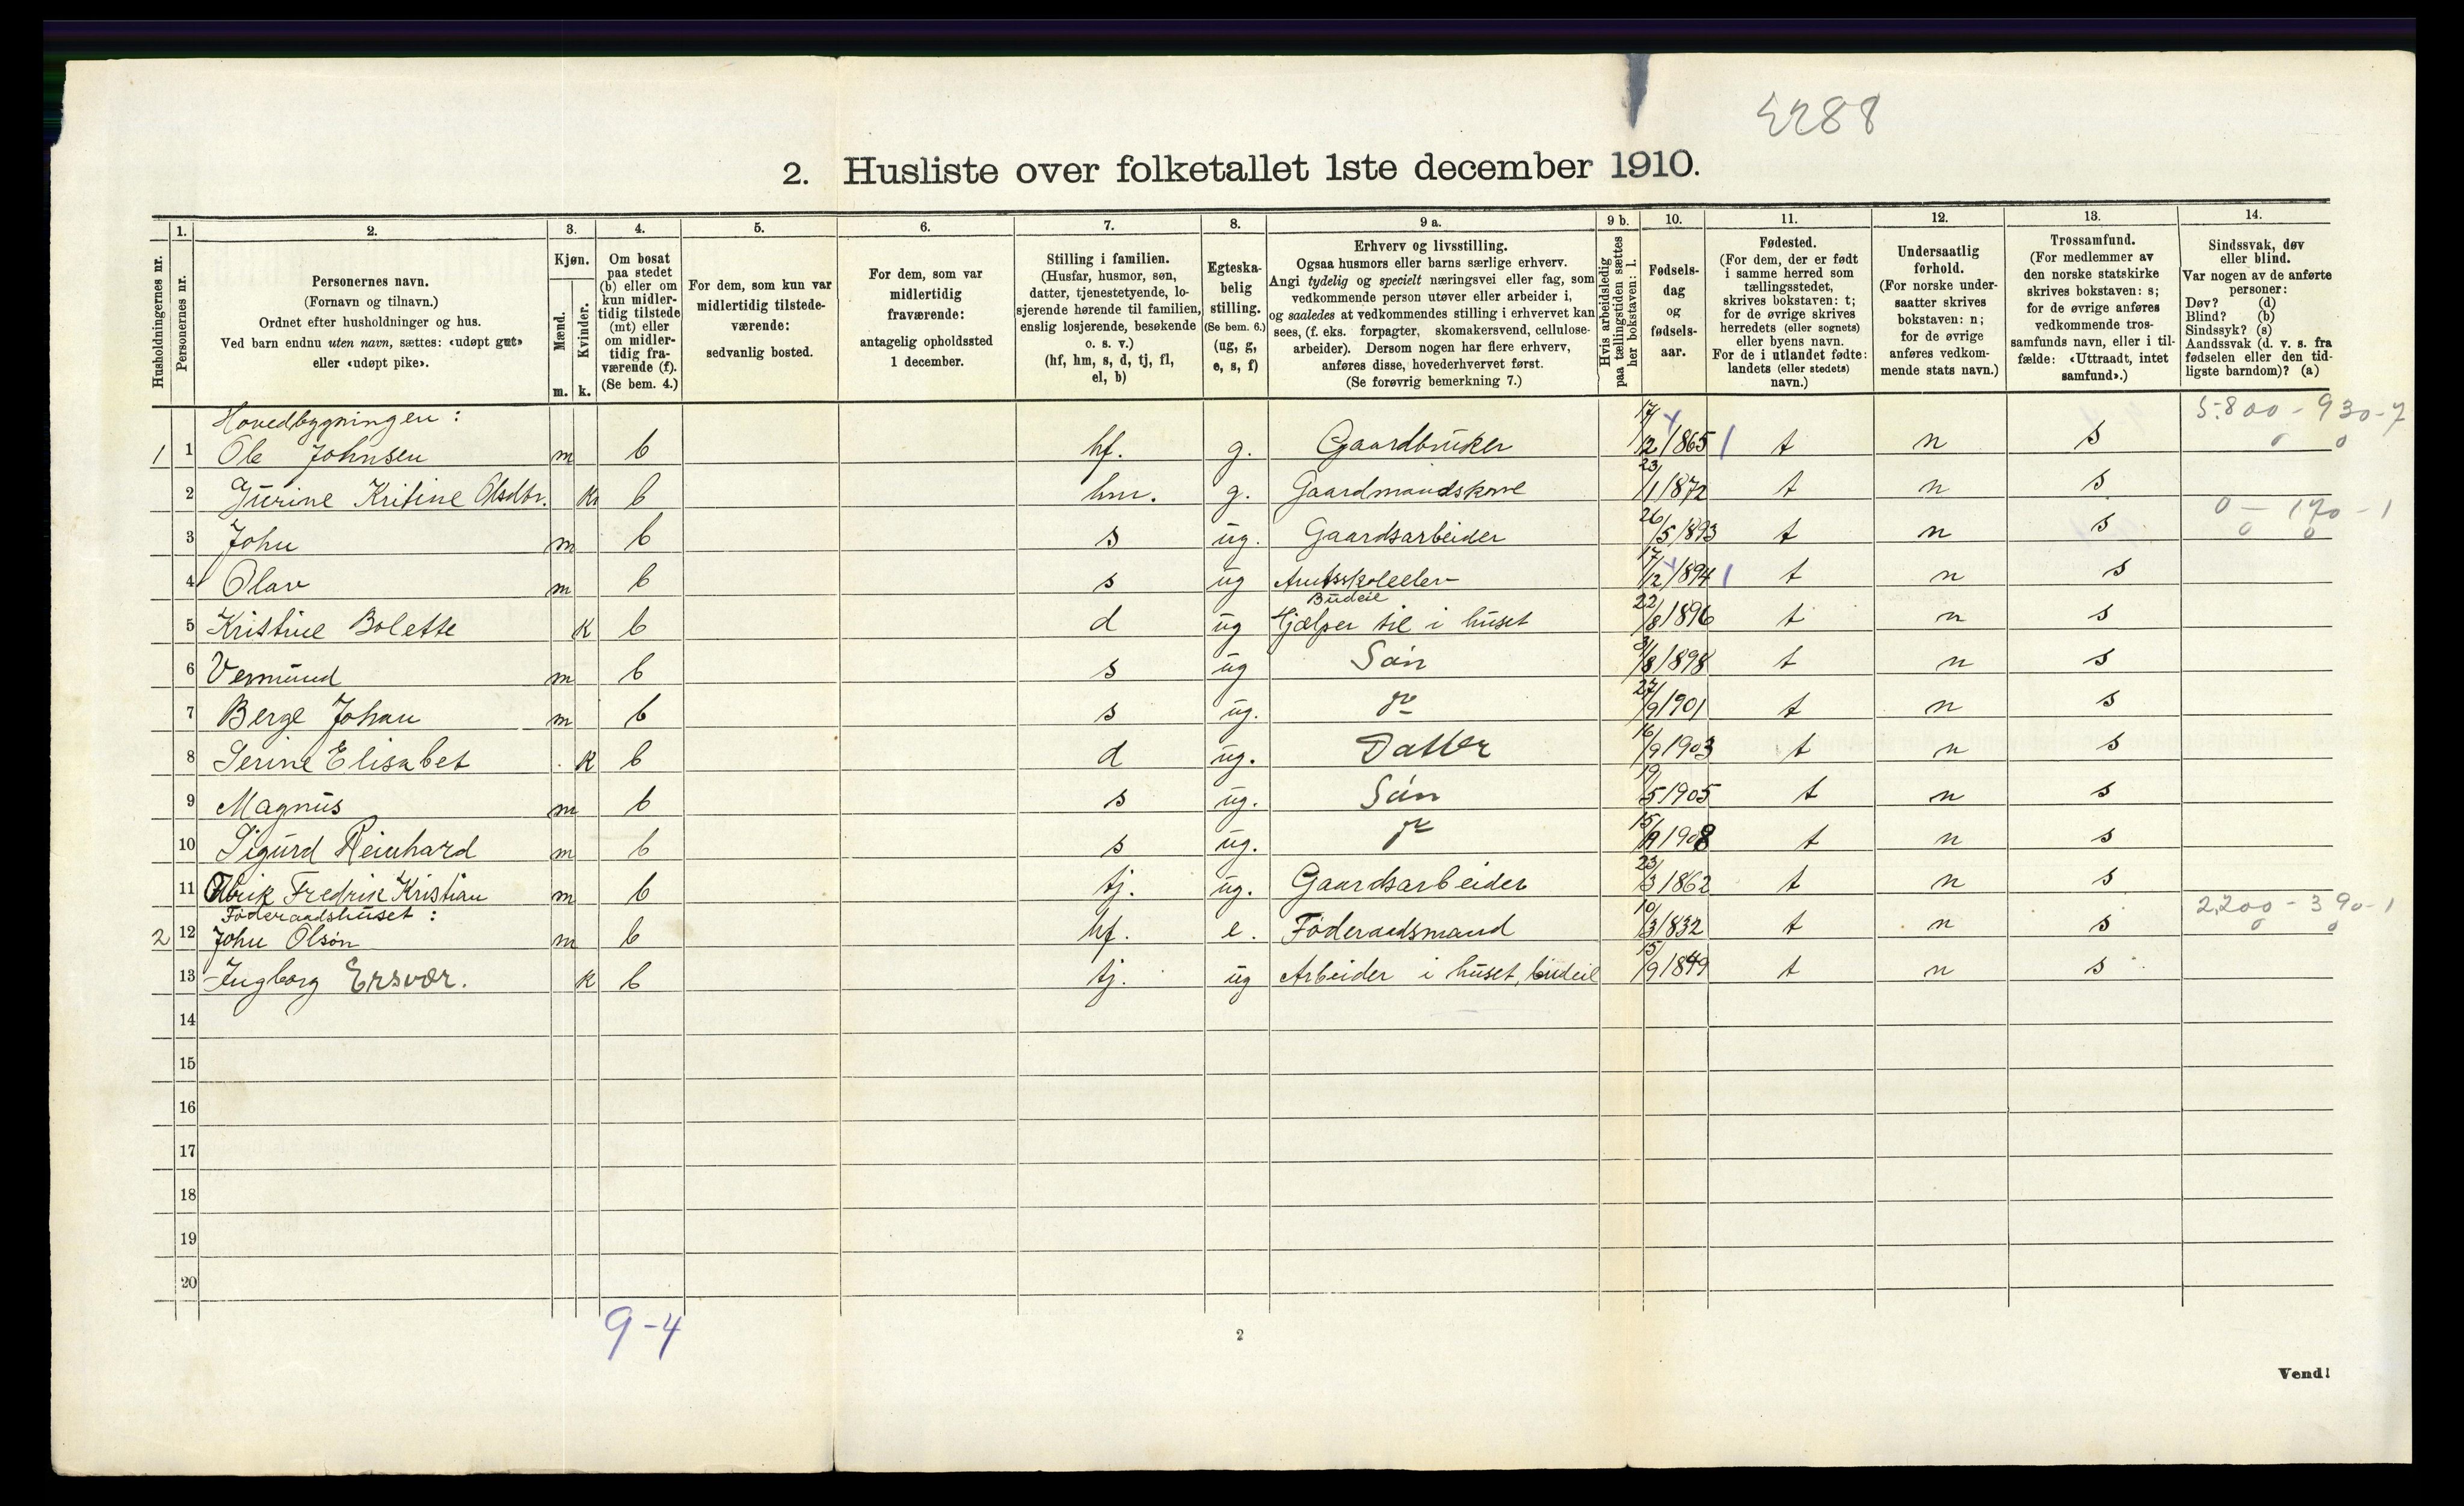 2. Husliste over folketallet 1ste december 1910.
1. 2. 3. 4. 5. 6. 7. 8. 9 a. 9 b. 10. 11. 12. 13. 14.
Husholdningernes nr.
Personernes nr.
Personernes navn.
(Fornavn og tilnavn.)
Ordnet efter husholdninger og hus.
Ved barn endnu uten navn, sættes: «udøpt gut»
eller «udøpt pike».
Kjøn.
Mænd.
Kvinder.
m. k.
Om bosat
paa stedet
(b) eller om
kun midler-
tidig tilstede
(mt) eller
om midler-
tidig fra-
værende (f).
(Se bem. 4.)
For dem, som kun var
midlertidig tilstede-
værende:
sedvanlig bosted.
For dem, som var
midlertidig
fraværende:
antagelig opholdssted
1 december.
Stilling i familien.
(Husfar, husmor, søn,
datter, tjenestetyende, lo-
sjerende hørende til familien,
enslig losjerende, besøkende
o. s. v.)
(hf, hm, s, d, tj, fl,
el, b)
Egteska-
belig
stilling.
(Se bem. 6.)
(ug, g,
e, s, f)
Erhverv og livsstilling.
Ogsaa husmors eller barns særlige erhverv.
Angi tydelig og specielt næringsvei eller fag, som
vedkommende person utøver eller arbeider i,
og saaledes at vedkommendes stilling i erhvervet kan
sees, (f. eks. forpagter, skomakersvend, cellulose-
arbeider). Dersom nogen har flere erhverv,
anføres disse, hovederhvervet først.
(Se forøvrig bemerkning 7.)
Hvis arbeidsledig
paa tællingstiden sættes
her bokstaven: l.
Fødsels-
dag
og
fødsels-
aar.
Fødested.
(For dem, der er født
i samme herred som
tællingsstedet,
skrives bokstaven: t;
for de øvrige skrives
herredets (eller sognets)
eller byens navn.
For de i utlandet fødte:
landets (eller stedets)
navn.)
Undersaatlig
forhold.
(For norske under-
saatter skrives
bokstaven: n;
for de øvrige
anføres vedkom-
mende stats navn.)
Trossamfund.
(For medlemmer av
den norske statskirke
skrives bokstaven: s;
for de øvrige anføres
vedkommende tros-
samfunds navn, eller i til-
fælde: «Uttraadt, intet
samfund».)
Sindssvak, døv
eller blind.
Var nogen av de anførte
personer:
Døv? (d)
Blind? (b)
Sindssyk? (s)
Aandssvak (d. v. s. fra
fødselen eller den tid-
ligste barndom)? (a)
Hovedbygningen: 5.800 - 930-7
1 1 Ole Johnsen m b hf. g. Gaardbruker 17/12 1865 t n s 0 0
2 Jurine Kritine Olsdtr. k b hm. g. Gaardmandskone 23/1 1872 t n s
0 - 170 - 1
3 John m b s ug. Gaardsarbeider 26/5 1893 t n s 0 0
4 Olav m b s ug Amtsskoleelev 17/12 1894 t n s
Budeie
5 Kristine Bolette k b d ug Hjælper til i huset 22/8 1896 t n s
6 Vermund m b s ug Søn 31/8 1898 t n s
7 Berge Johan m b s ug. do 27/9 1901 t n s
8 Serine Elisabet k b d ug. Datter 16/9 1903 t n s
9 Magnus m b s ug. Søn 19/5 1905 t n s
10 Sigurd Reinhard m b s ug. do 15/ 1908 t n s
11 Ulrik Fredrik Kristian m b tj. ug. Gaardsarbeider 23/3 1862 t n s
Føderaadshuset: 2,200 - 390-1
2 12 John Olsøn m b hf. e. Føderaadsmand 10/3 1832 t n s 0 0
13 Ingborg Ersvær. k b tj. ug Arbeider i huset, budeie 15/9 1849 t n s
14
15
16
17
18
19
20
9-4
2
Vend!